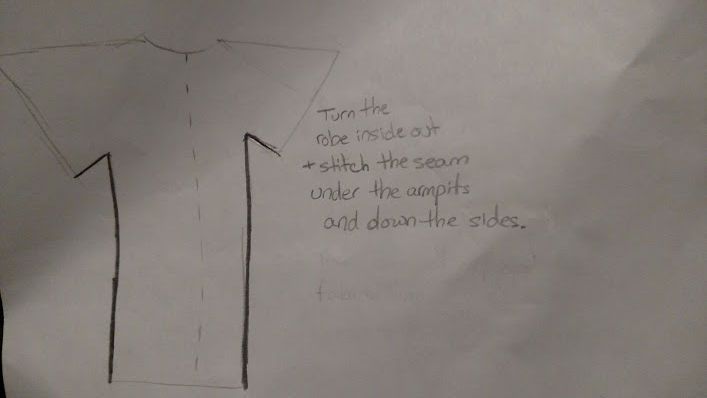 Turn the
robe inside out
+ stitch the seam
under the armpits
and down the sides.